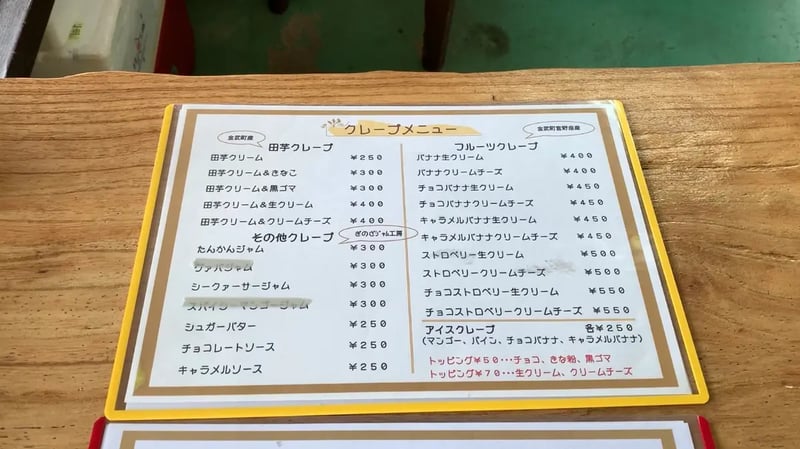 クレープメニュー
金武町産
田芋クレープ
田芋クリーム ¥250
田芋クリーム&きなこ ¥300
田芋クリーム&黒ゴマ ¥300
田芋クリーム&生クリーム ¥400
田芋クリーム&クリームチーズ ¥400
その他クレープ
ぎのざジャム工房
たんかんジャム ¥300
グァバジャム ¥300
シークァーサージャム ¥300
スパイシーマンゴージャム ¥300
シュガーバター ¥250
チョコレートソース ¥250
キャラメルソース ¥250
金武町宜野座産
フルーツクレープ
バナナ生クリーム ¥400
バナナクリームチーズ ¥400
チョコバナナ生クリーム ¥450
チョコバナナクリームチーズ ¥450
キャラメルバナナ生クリーム ¥450
キャラメルバナナクリームチーズ ¥450
ストロベリー生クリーム ¥500
ストロベリークリームチーズ ¥500
チョコストロベリー生クリーム ¥550
チョコストロベリークリームチーズ ¥550
アイスクレープ 各¥250
(マンゴー、パイン、チョコバナナ、キャラメルバナナ)
トッピング¥50・・・チョコ、きな粉、黒ゴマ
トッピング¥70・・・生クリーム、クリームチーズ